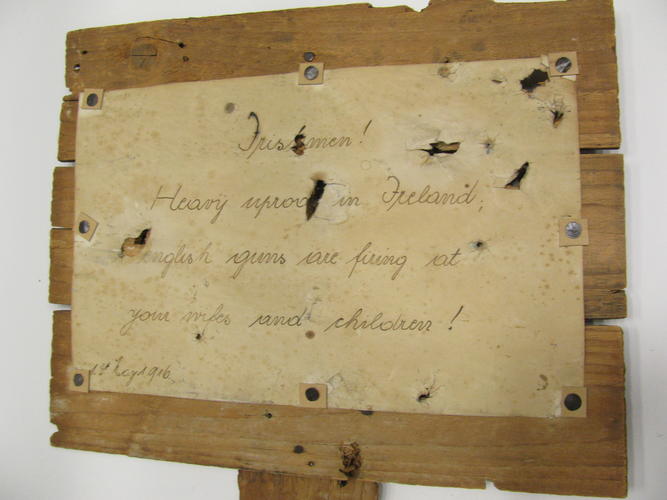 Irishmen!
Heavy uproar in Ireland;
English guns are firing at
your wifes and children!
1st May 1916.